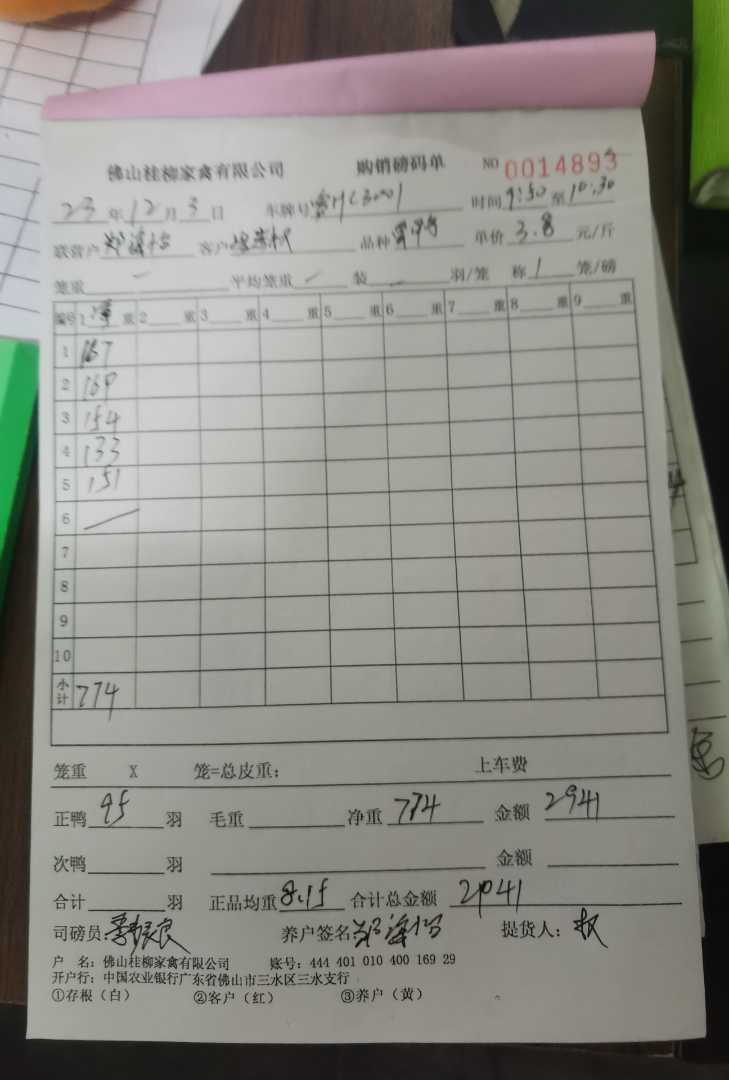 佛山桂柳家禽有限公司 购销磅码单 NO 0014893
23年12月3日 车牌号 时间9:50至10:30
联营户 客户 品种 单价3.8元/斤
笼重 一 平均笼重 一 装 一 羽/笼 称1笼/磅
编号 1 净 重 2 重 3 重 4 重 5 重 6 重 7 重 8 重 9 重
1 167
2 169
3 154
4 133
5 151
6
7
8
9
10
小计 774
笼重 X 笼=总皮重: 上车费
正鸭95羽 毛重 净重774 金额2941
次鸭 羽 金额
合计 羽 正品均重8.15 合计总金额2941
司磅员: 养户签名 提货人: 权
户 名: 佛山桂柳家禽有限公司 账号: 444 401 010 400 169 29
开户行: 中国农业银行广东省佛山市三水区三水支行
①存根(白) ②客户(红) ③养户(黄)